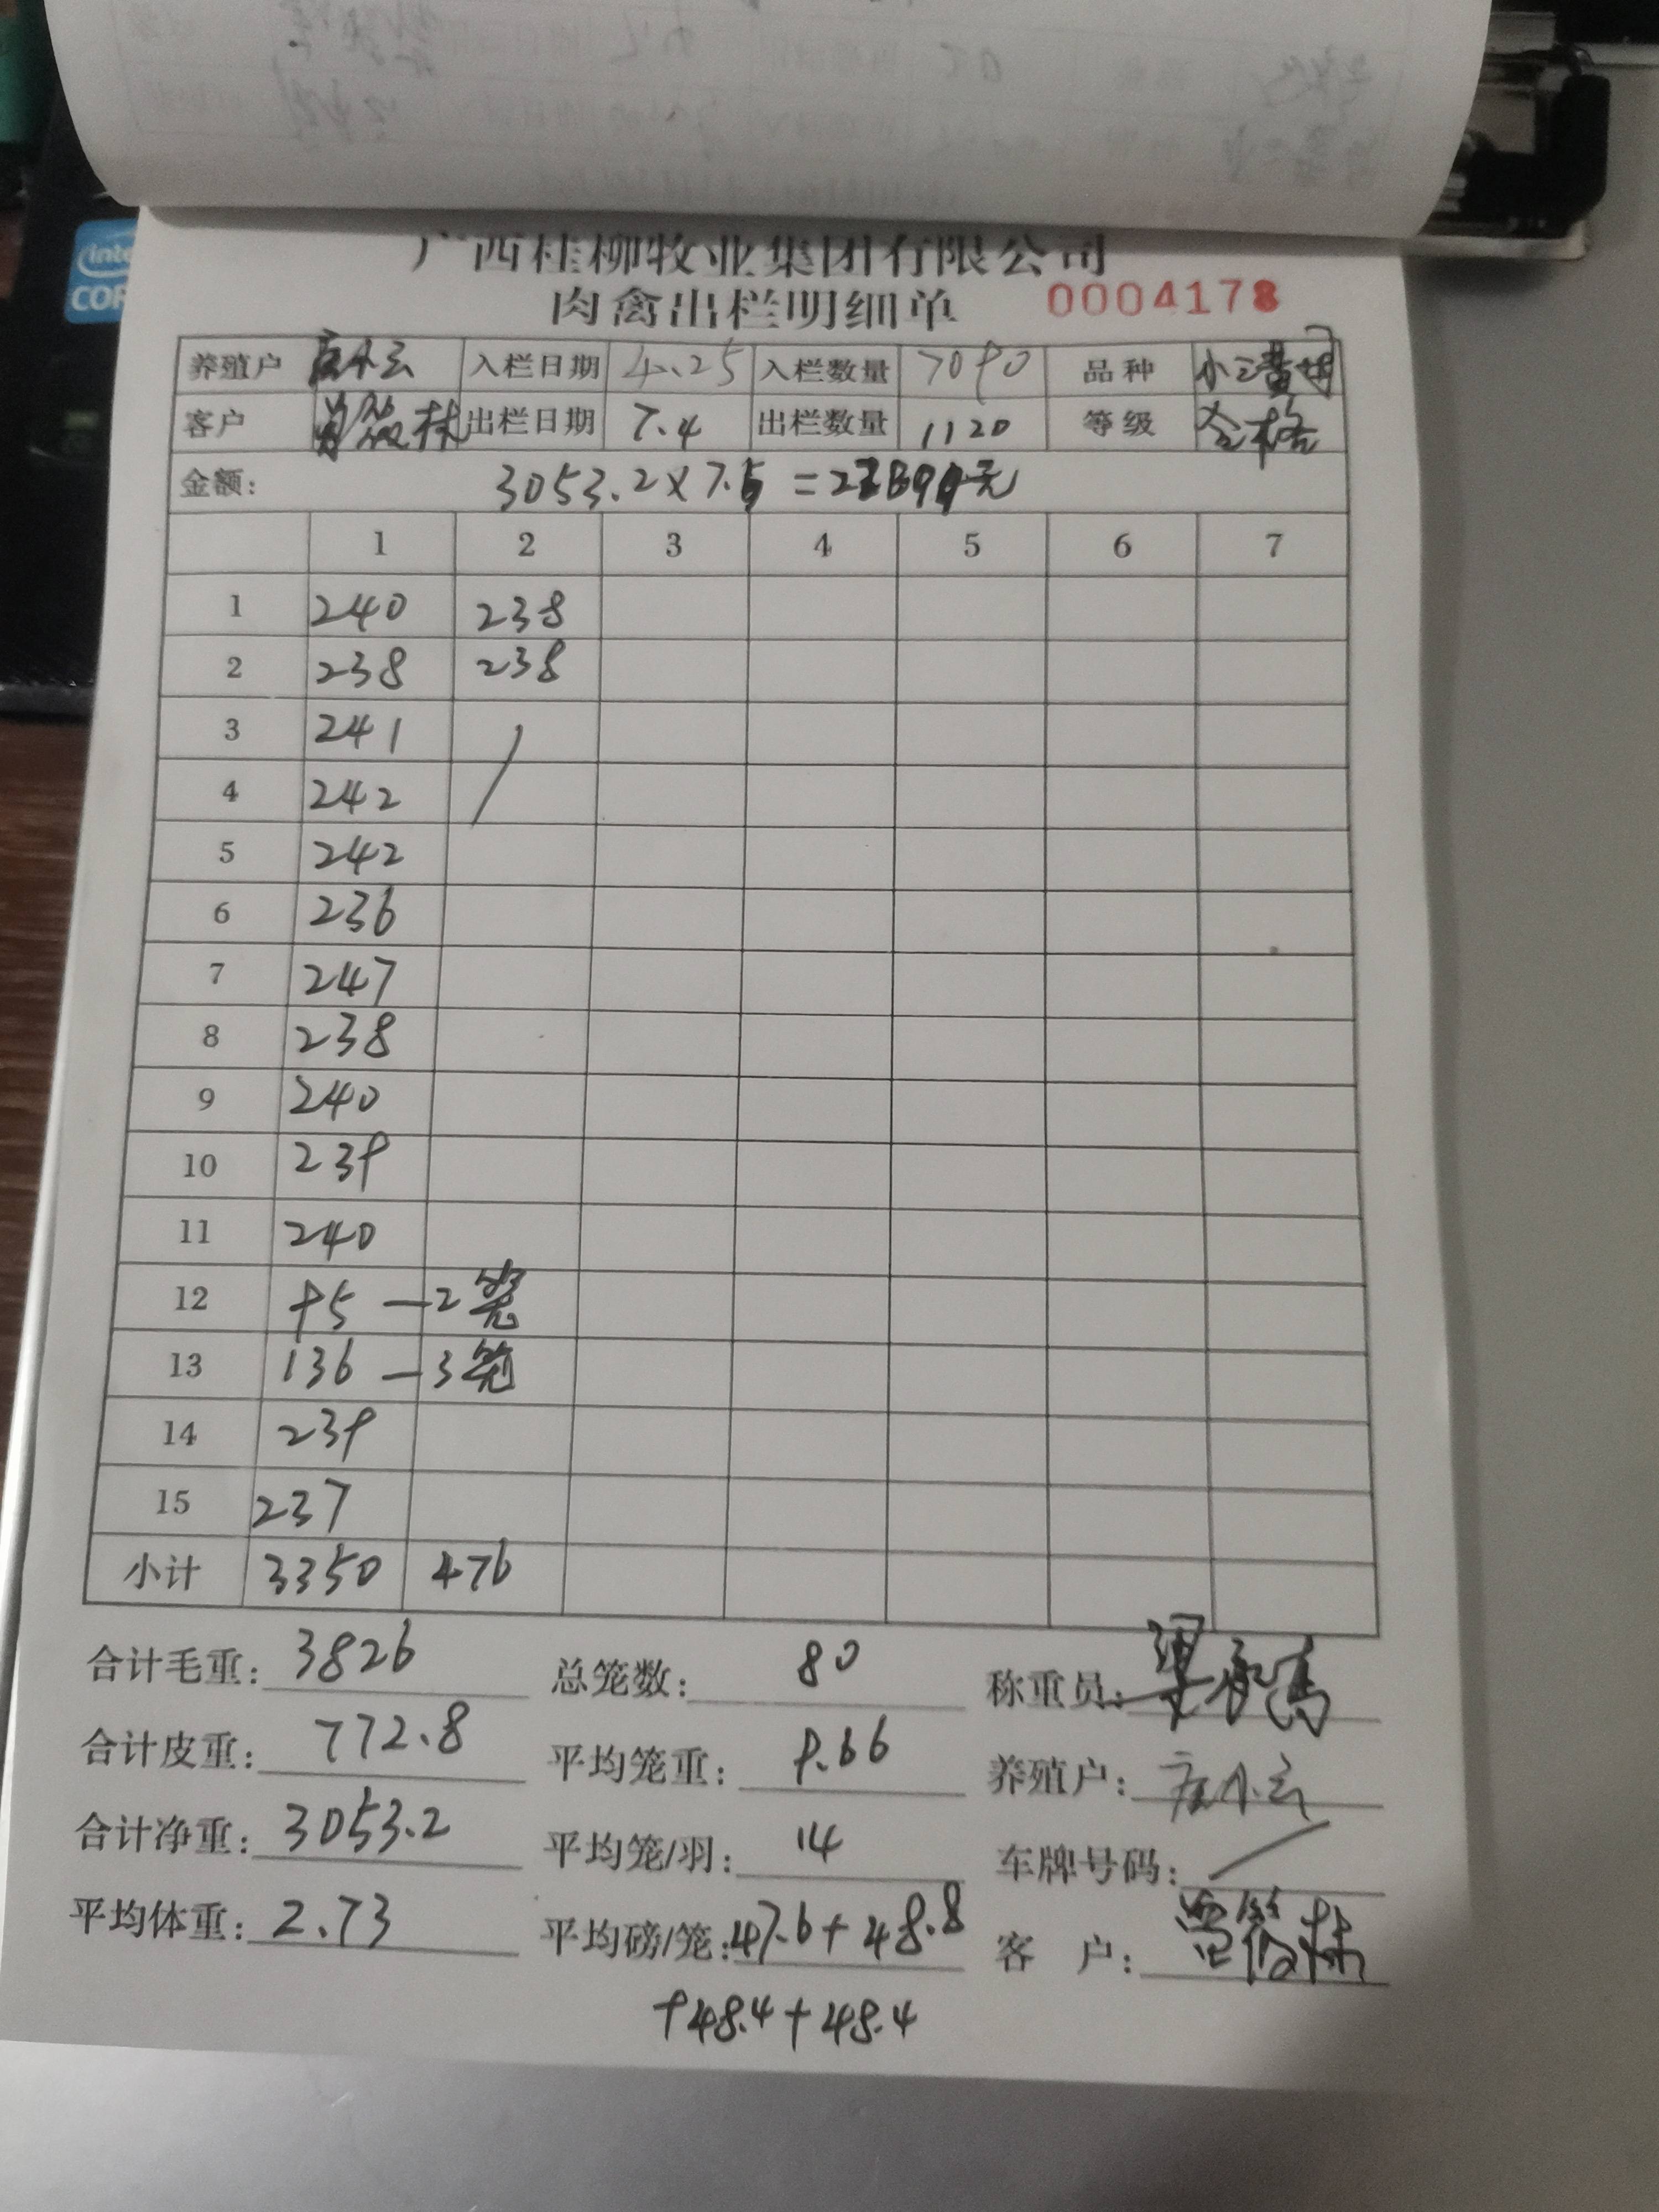 广西桂柳牧业集团有限公司
肉禽出栏明细单 0004178
养殖户 入栏日期 4.25 入栏数量 7090 品种
客户 出栏日期 7.4 出栏数量 1120 等级 合格
金额: 3053.2×7.5=22899元
1 2 3 4 5 6 7
1 240 238
2 238 238
3 241 /
4 242
5 242
6 236
7 247
8 238
9 240
10 239
11 240
12 95 — 2笼
13 136 — 3笼
14 239
15 237
小计 3350 476
合计毛重: 3826 总笼数: 80 称重员:
合计皮重: 772.8 平均笼重: 9.66 养殖户:
合计净重: 3053.2 平均笼/羽: 14 车牌号码: /
平均体重: 2.73 平均磅/笼: 47.6+48.8 客 户:
+48.4+48.4